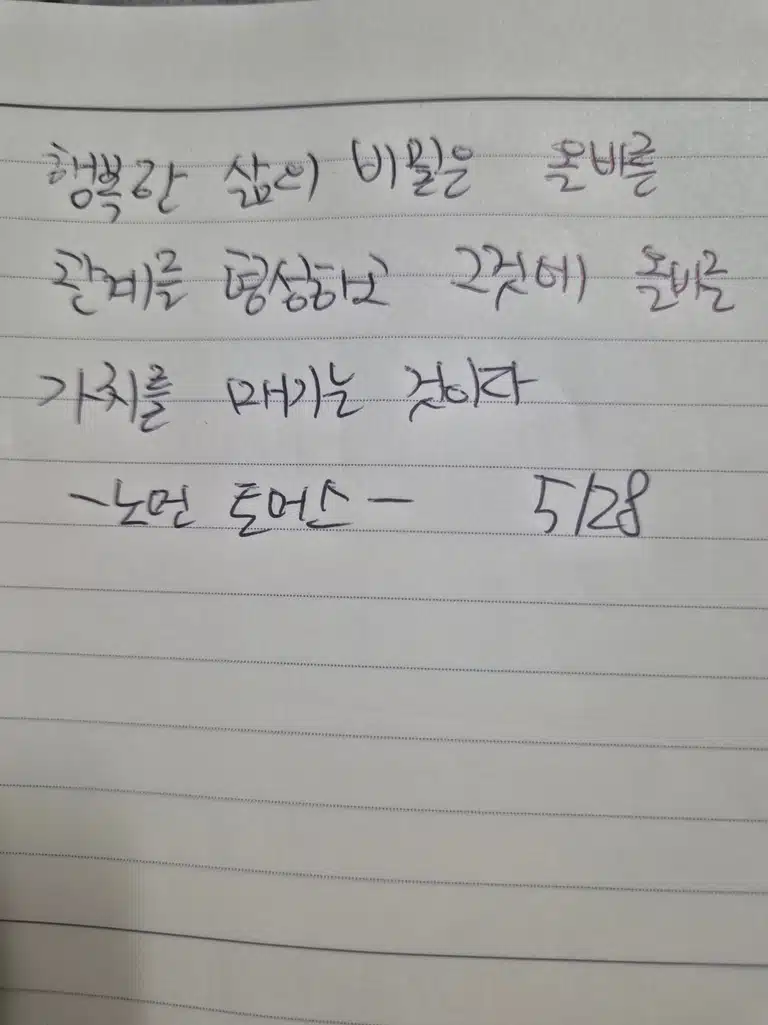 행복한 삶의 비밀은 올바른
관계를 형성하고 그것에 올바른
가치를 매기는 것이다
-노먼 토머스- 5/28